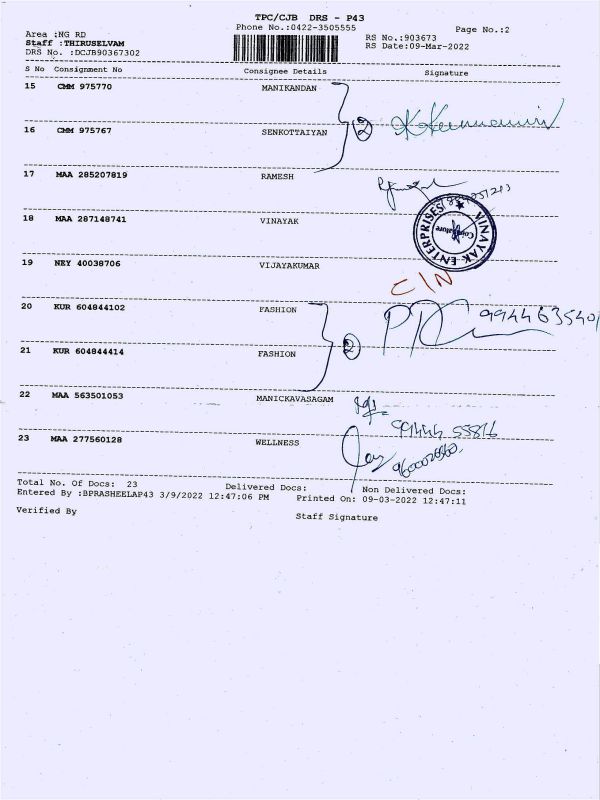 TPC/CJB DRS - P43
Phone No.:0422-3505555
Page No.:2
Area :NG RD
RS No.:903673
Staff :THIRUSELVAM
RS Date:09-Mar-2022
DRS No. :DCJB90367302
S No Consignment No Consignee Details Signature
15 CMM 975770 MANIKANDAN
16 CMM 975767 SENKOTTAIYAN 2
17 MAA 285207819 RAMESH
18 MAA 287148741 VINAYAK
VINAYAK ENTERPRISES
Coimbatore
19 NEY 40038706 VIJAYAKUMAR
CIN
20 KUR 604844102 FASHION
9944635401
21 KUR 604844414 FASHION 2
22 MAA 563501053 MANICKAVASAGAM
99444 55816
23 MAA 277560128 WELLNESS
Total No. Of Docs: 23 Delivered Docs: Non Delivered Docs:
Entered By :BPRASHEELAP43 3/9/2022 12:47:06 PM Printed On: 09-03-2022 12:47:11
Verified By Staff Signature